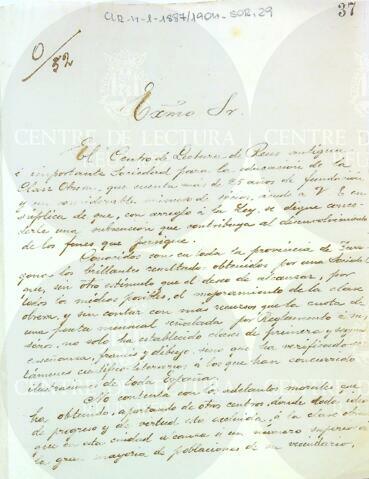 CLR-11-1-1887/1904-SOR.29
37
0/52
Exmo Sr.
El Centro de Lectura de Reus antigua
é importante Sociedad para la educación de la
Clase Obrera, que cuenta mas de 25 años de fundación
y un considerable número de socios, acude a V. E. en
súplica de que, con arreglo a la Ley, se digne conce-
derle una subvencion que contribuya al desenvolvimiento
de los fines que persigue.
Conocidos son en toda la provincia de Tarra-
gona los brillantes resultados obtenidos por una Sociedad
que, sin otro estimulo que el deseo de alcanzar, por
todos los medios posibles, el mejoramiento de la clase
obrera, y sin contar con mas recursos que la cuota de
una peseta mensual señalada por Reglamento á sus
socios, no solo ha establecido clases de primera y segunda
enseñanza, francés y dibujo, sino que ha verificado cer-
támenes cientifico-literarios á los que han concurrido
ilustraciones de toda España.
No contenta con los adelantos morales que
ha obtenido, apartando de otros centros, donde toda idea
de progreso y de virtud es, á la clase obrera
que en esta ciudad alcanza á un número superior á
la gran mayoria de poblaciones de su vecindario,
CENTRE DE LECTURA
CENTRE DE LECTURA